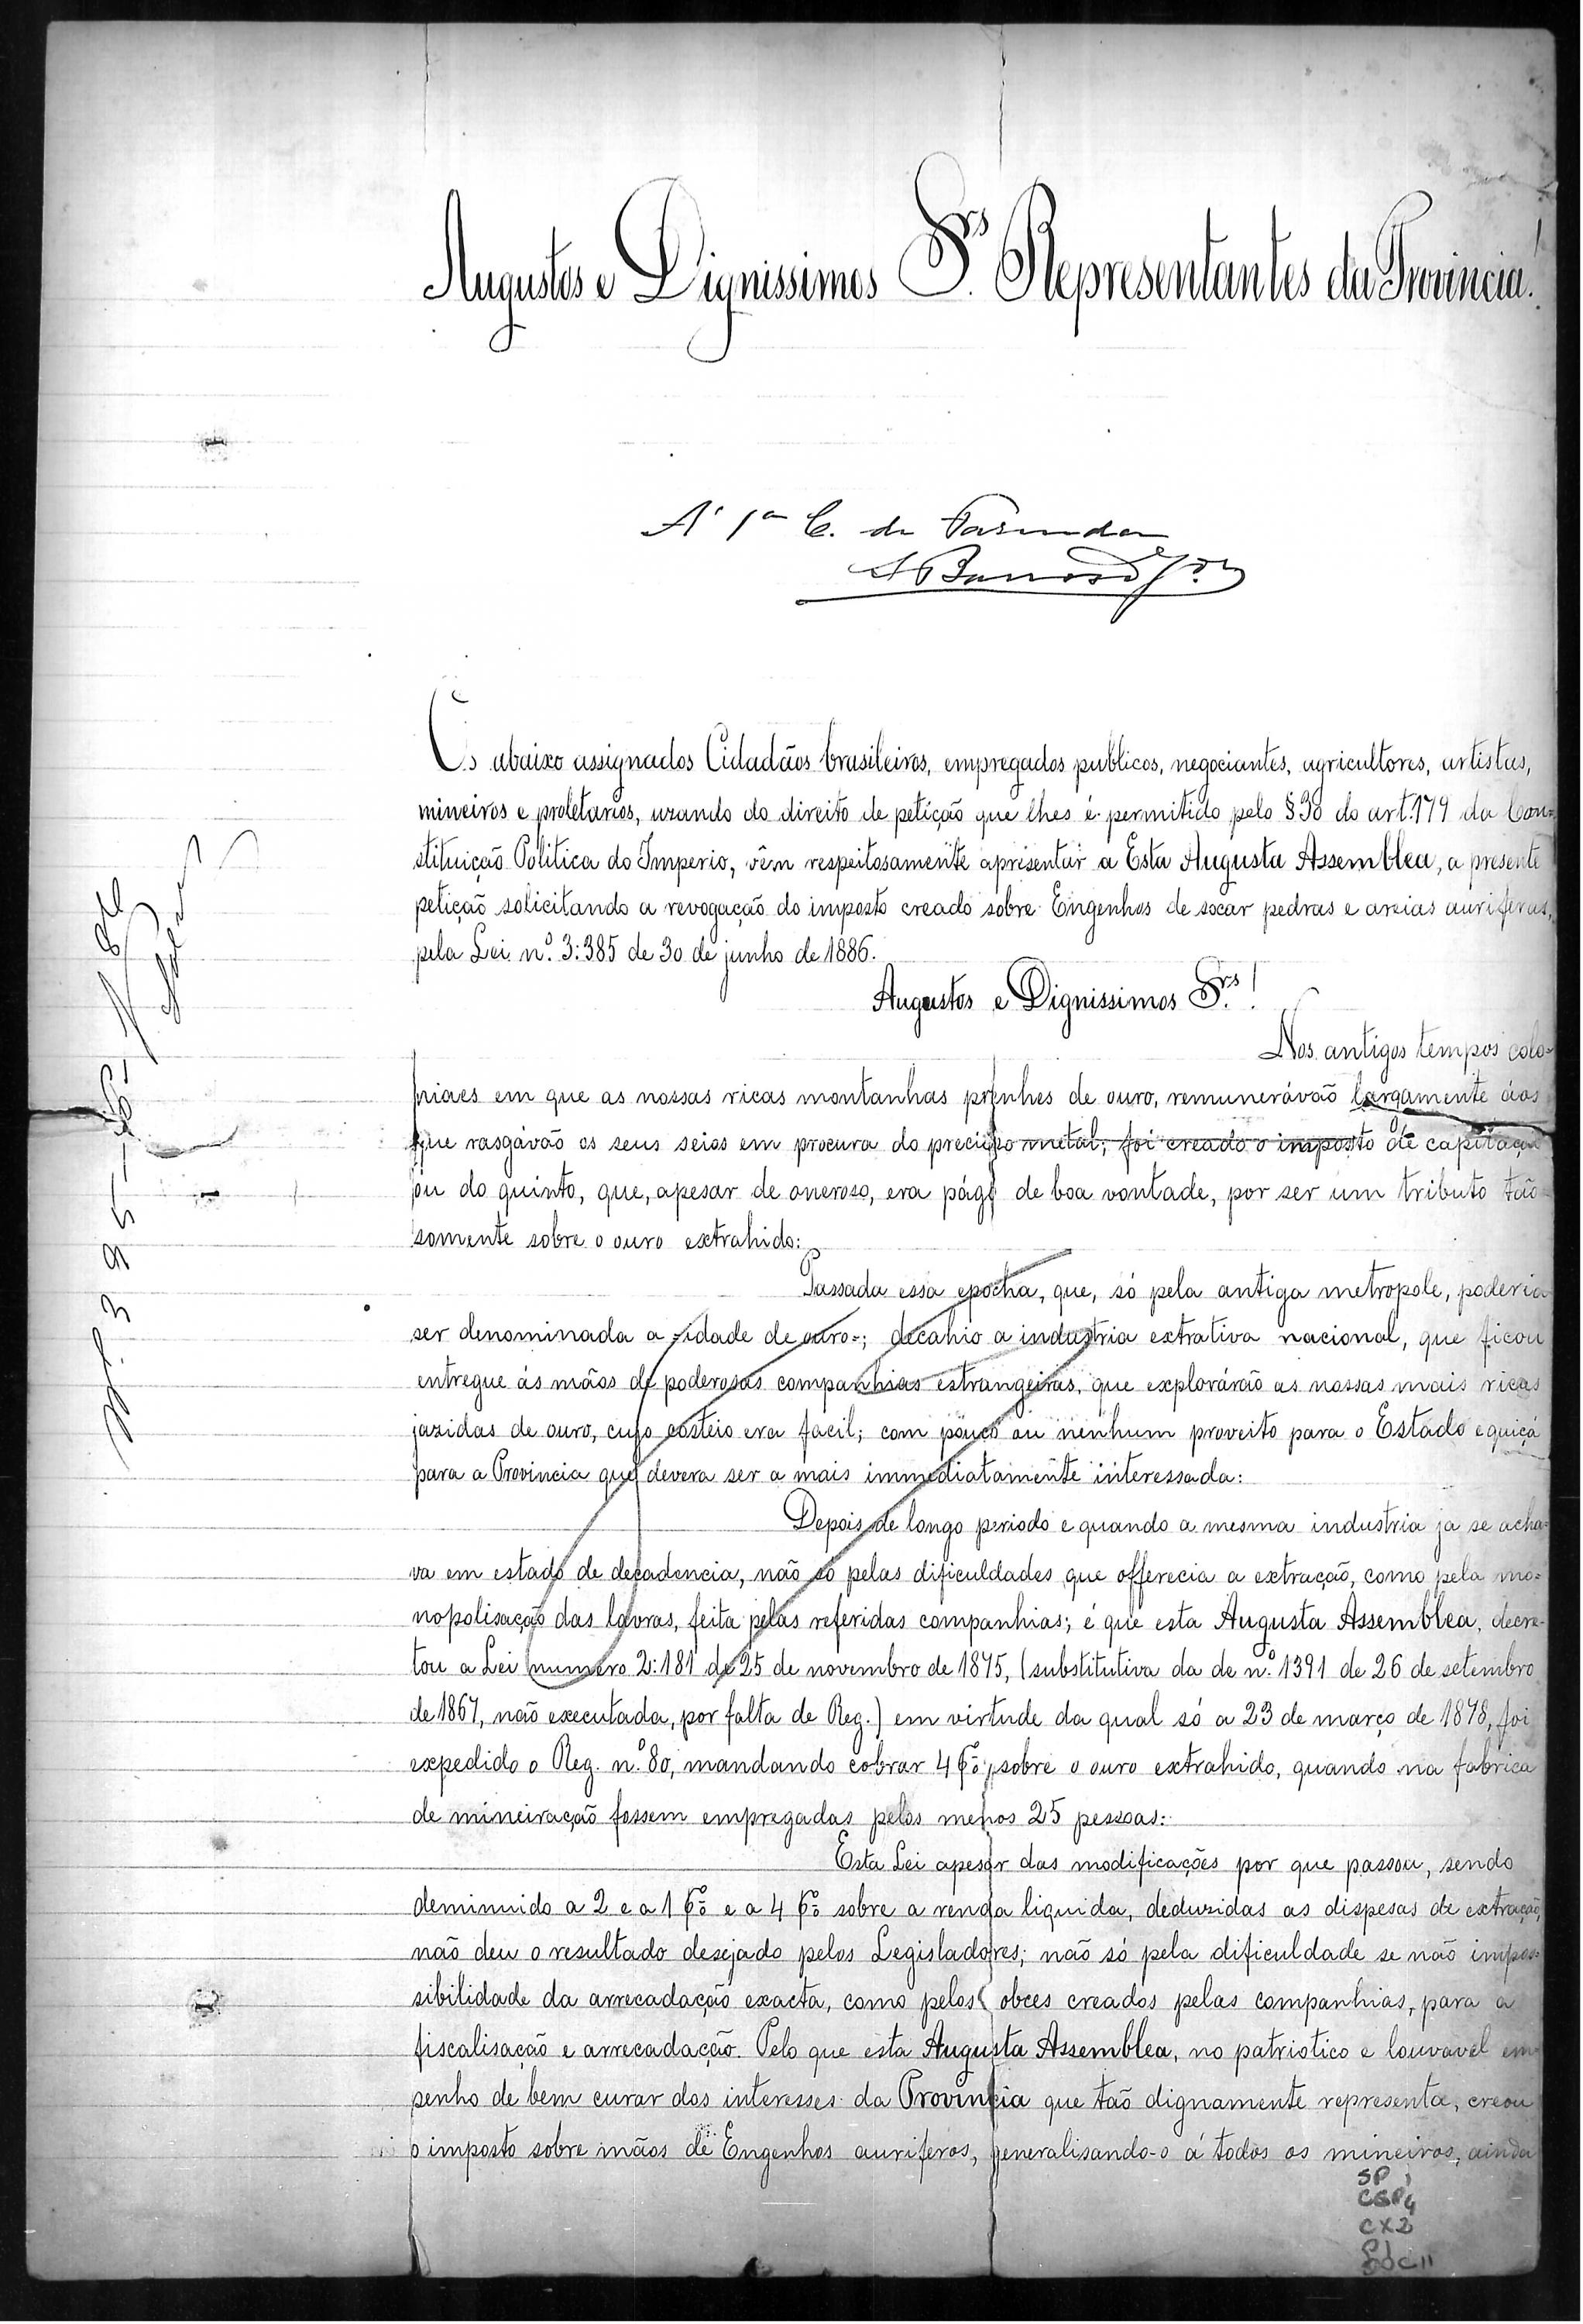 Augustos e Dignissimos Srs. Representantes da Provincia!
A' 1ª C. de Fasenda
Barroso Jor
Os abaixo assignados Cidadãos brasileiros, empregados publicos, negociantes, agricultores, artistas,
mineiros e proletarios, uzando do direito de petição que lhes é permitido pelo § 30 do art. 179 da Con=
stituição Politica do Imperio, vêm respeitosamente apresentar a Esta Augusta Assemblea, a presente
petição solicitando a revogação do imposto creado sobre Engenhos de socar pedras e areias auriferas,
pela Lei nº. 3:385 de 30 de junho de 1886.
Augustos e Dignissimos Srs.!
Nos antigos tempos colo=
niaes em que as nossas ricas montanhas prenhes de ouro, remunerávão largamente áos
que rasgávão os seus seios em procura do precioso metal; foi creado o imposto de capitação
ou do quinto, que, apesar de oneroso, era págo de boa vontade, por ser um tributo tão
somente sobre o ouro extrahido:
Passada essa epocha, que, só pela antiga metropole, poderia
ser denominada a =idade de ouro=; decahio a industria extrativa nacional, que ficou
entregue ás mãos de poderosas companhias estrangeiras, que explorárão as nossas mais ricas
jazidas de ouro, cujo costeio era facil; com pouco ou nenhum proveito para o Estado e quiçá
para a Provincia que devera ser a mais immediatamente interessada:
Depois de longo periodo e quando a mesma industria ja se acha=
va em estado de decadencia, não só pelas dificuldades que offerecia a extração, como pela mo=
nopolisação das lavras, feita pelas referidas companhias; é que esta Augusta Assemblea, decre=
tou a Lei numero 2:181 de 25 de novembro de 1875, (substitutiva da de nº. 1391 de 26 de setembro
de 1867, não executada, por falta de Reg.) em virtude da qual só a 23 de março de 1878, foi
expedido o Reg. nº. 80, mandando cobrar 4 % sobre o ouro extrahido, quando na fabrica
de mineiração fossem empregadas pelos menos 25 pessoas:
Esta Lei apesar das modificações por que passou, sendo
deminuido a 2 e a 1 % e a 4 % sobre a renda liquida, deduzidas as dispesas de extração,
não deu o resultado desejado pelos Legisladores; não só pela dificuldade se não impos=
sibilidade da arrecadação exacta, como pelos obces creados pelas companhias, para a
fiscalisação e arrecadação. Pelo que esta Augusta Assemblea, no patriotico e louvavel em
penho de bem curar dos interesses da Provincia que tão dignamente representa, creou
o imposto sobre mãos de Engenhos auriferos, generalisando-o á todos os mineiros, ainda
SP 1
CGP4
CX2
Doc 11